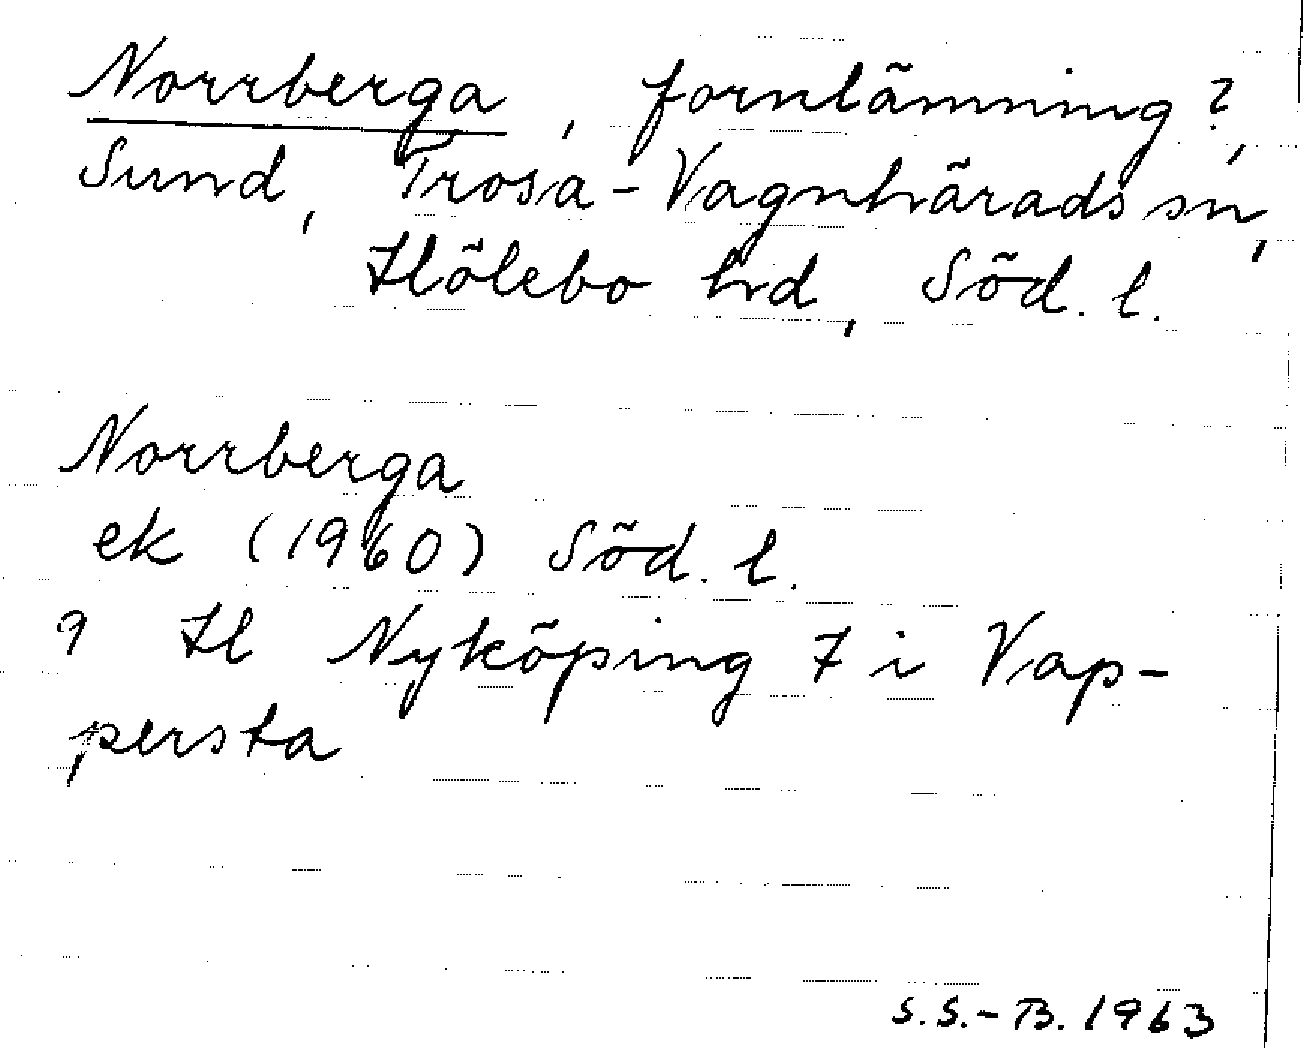 Norrberga, fornlämning?,
Sund, Trosa-Vagnhärads sn,
Hölebo hrd, Söd. l.
Norrberga
ek (1960) Söd. l.
9 Hl Nyköping 7 i Vap-
persta
S.S.-B. 1963